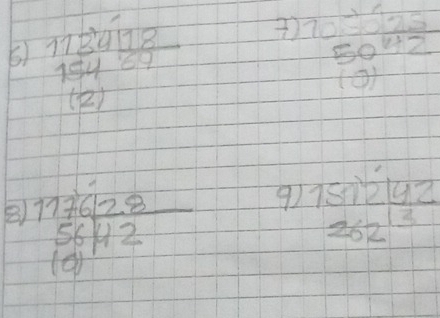 6) 1184 18
154 69
(2)
7) 1050 25
50 42
(0)
8) 1176 28
56 42
(0)
9) 1512 42
262 3